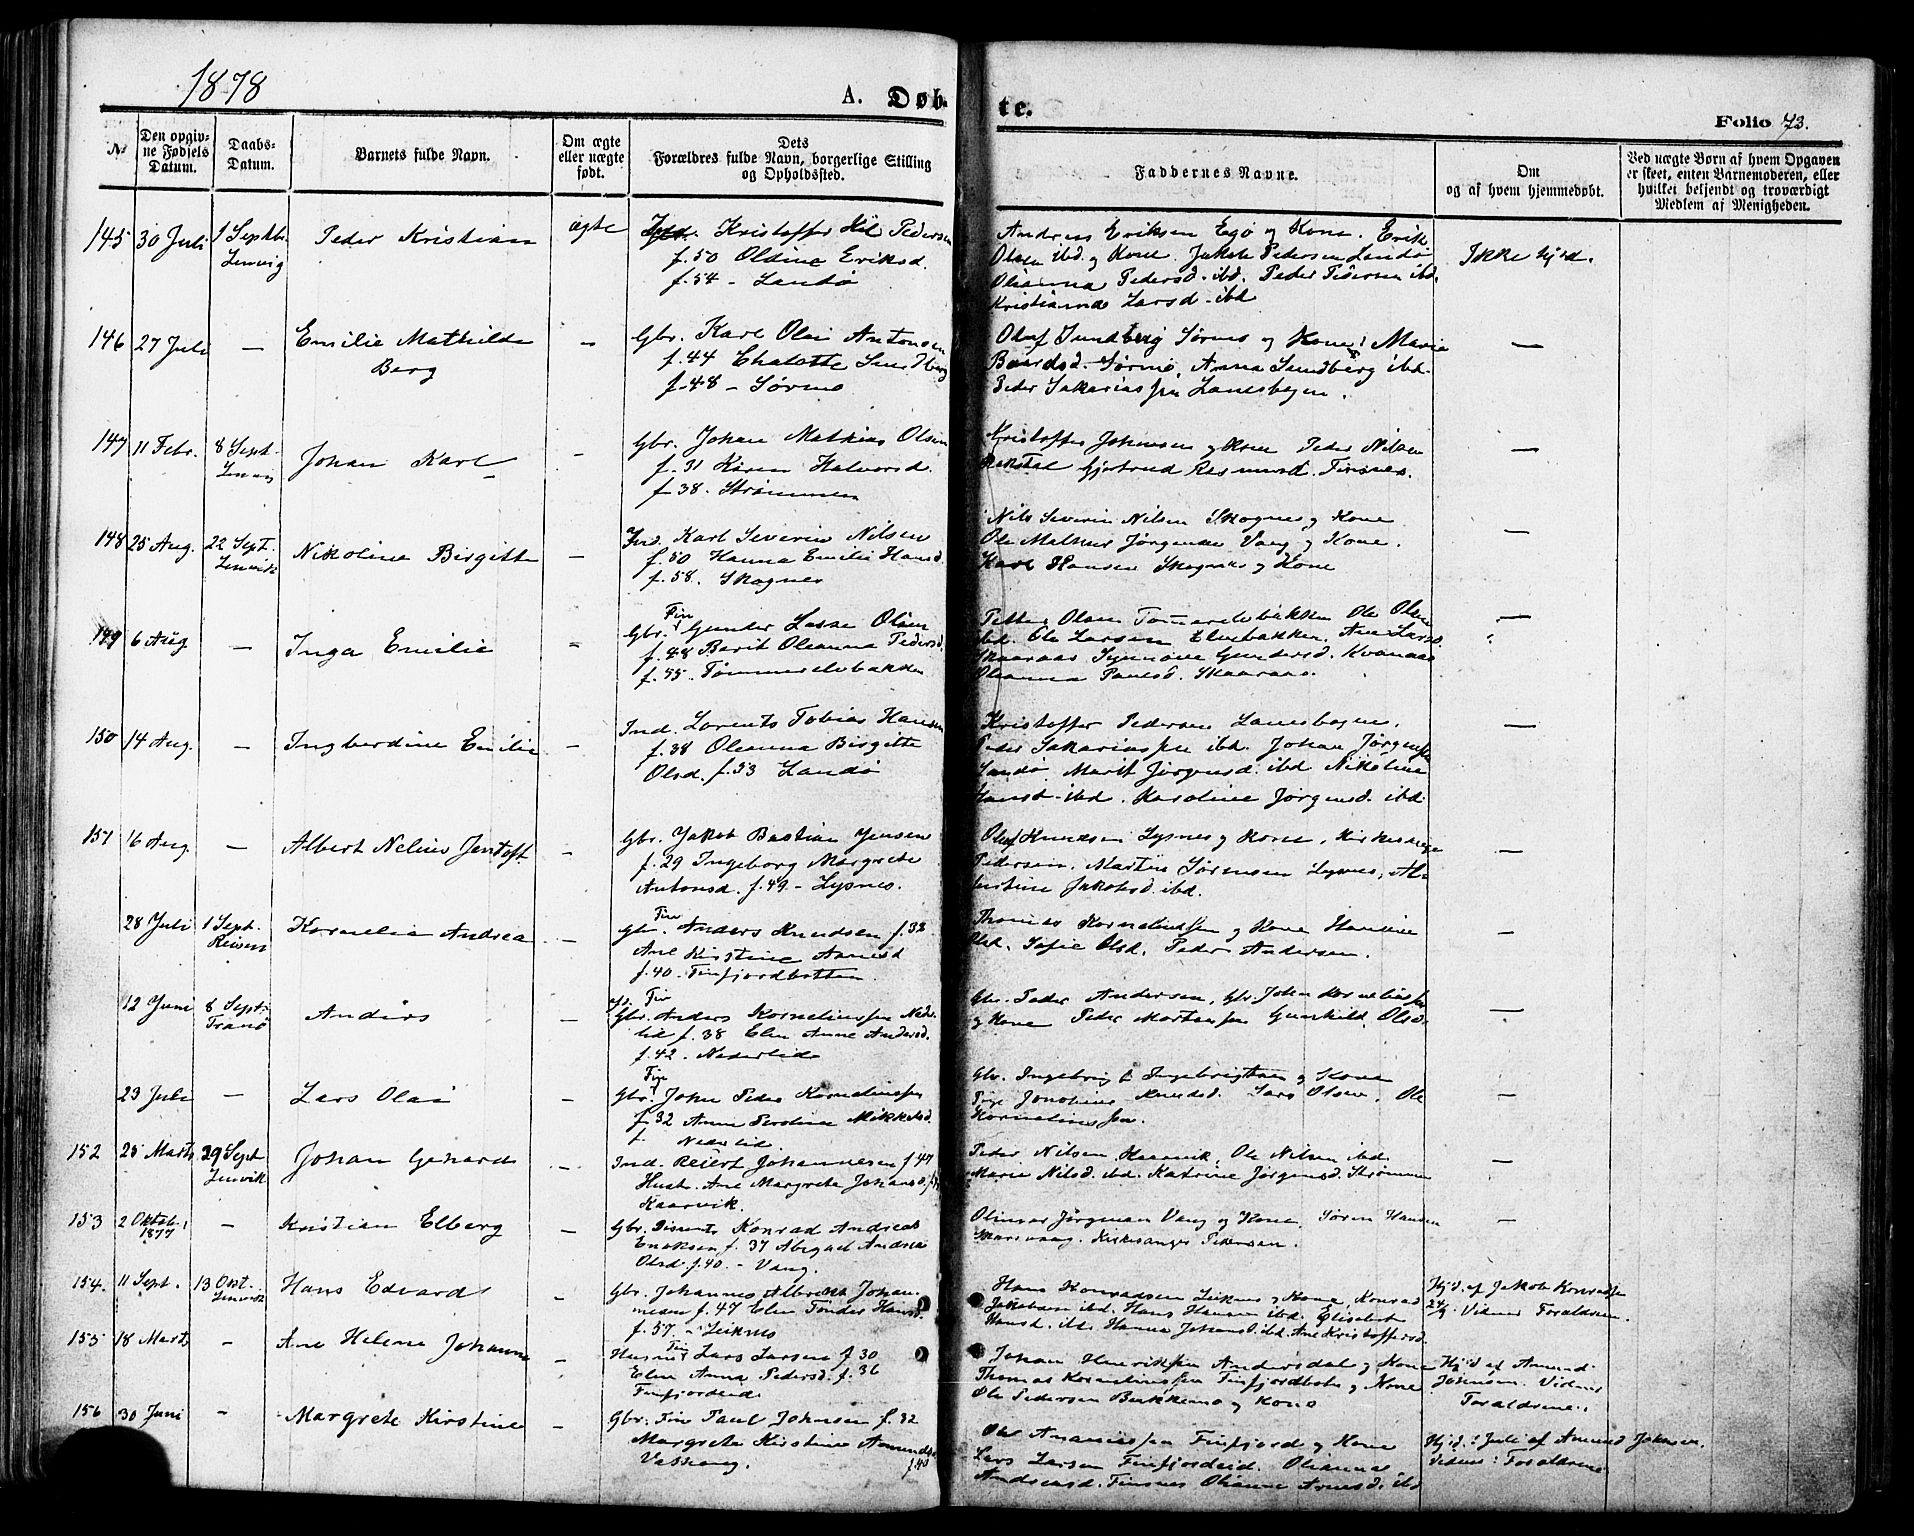 1878
A. Døb-
te.
Folio 73.
No
Den opgiv-
ne Fødsels
Datum.
Daabs-
Datum.
Barnets fulde Navn.
Om ægte
eller uægte
født.
Dets
Forældres fulde Navn, borgerlige Stilling
og Opholdssted.
Faddernes Navne.
Om
og af hvem hjemmedøbt.
Ved uægte Børn af hvem Opgaven
er skeet, enten Barnemoderen, eller
hvilket bekjendt og troværdigt
Medlem af Menigheden.
145 30 Juli 1 Septbr. Peder Kristian ægte Kristoffer Pedersen
Lenvig f. 50 Oldine Eriksd.
f. 54 - Landø
Andreas Eriksen Egø og Kone. Erik
Olsen ibd. og Kone. Jakob Pedersen Landø
Oleanna Pedersd. ibd. Peder Pedersen ibd.
Kristianna Larsd. ibd
Ikke hjd.
146 27 Juli — Emilie Mathilde — Gbr. Karl Olai Antonsen
Berg f. 44 Chalotte Sundberg
f. 48 - Sørmo
Oluf Sundberg Sørnes og Kone. Maria
Baardsd. Sørmo. Anna Sundberg ibd.
Peder Sakariassen Lanesbogen. —
147 11 Febr. 8 Sept. Johan Karl — Gbr. Johan Mathias Olsen
Lenvig f. 31 Karen Halvorsd.
f. 38. Strømmen
Kristoffer Johnsen og Kone Peder Nilsen
Gjertrud Rasmusd. Finsnes. —
148 25 Aug. 22 Sept. Nikoline Birgitte — Ind. Karl Severin Nilsen
Lenvik f. 50 Hanna Emilie Hansd.
f. 58. Skognes
Nils Severin Nilsen Skognes og Kone
Ole Mathias Jørgensen Vang og Kone.
Karl Hansen Skognes og Kone —
149 6 Aug — Inga Emilie — Gbr. Fin Gunder Lasse Olsen
f. 48 Barit Oleanna Pedersd.
f. 55. Tømmerelvbakken
Petter Olsen Tømmerelvbakken Ole Olsen
ibd. Ole Larsen Elvebakken. Ane Larsd.
Skaaraas Synnøve Gundersd. Kvanaas
Oleanna Paulsd. Skaaraas. —
150 14 Aug. — Ingberdine Emilie — Ind. Lorents Tobias Hansen
f. 38 Oleanna Birgitte
Olsd. f. 53 Landø
Kristoffer Pedersen Lanesbogen.
Peder Sakariassen ibd. Johan Jørgensen
Landø. Marit Jørgensd. ibd Nikoline
Hansd. ibd. Karoline Jørgensd. ibd. —
151 16 Aug. — Albert Nelius Jentoft — Gbr. Jakob Bastian Jensen
f. 29 Ingeborg Margrete
Antonsd. f. 49 - Lysnes.
Oluf Knudsen Lysnes og Kone. Kirkesanger
Pedersen. Martin Sørensen Lysnes. Al-
bertine Jakobsd. ibd. —
28 Juli 1 Sept. Kornelia Andrea — Gbr. Fin Anders Knudsen f. 33
Reisen Ane Kirstine
f. 40 - Finfjordbotten.
Thomas Korneliussen og Kone
Olsd. Sofie Olsd. Peder Andersen. —
12 Juni 8 Sept. Anders — Gbr. Fin Anders Korneliussen Neder-
Tranø lid f. 38 Elen Anne Andersd.
f. 42 - Nederlid
Gbr. Peder Andersen, Gbr Johan Korneliussen
og Kone Peder Mortensen Gunhild Olsd. —
23 Juli — Lars Olai — Gbr. Fin John Peder Korneliussen
f. 32 Anne Mikkelsd.
f. Nederlid
Gbr. Ingebrigt Ingebrigtsen og Kone
Pige Knudsd. Lars Olsen. Ole
Korneliussen. —
152 25 Marts 29 Sept Johan Gerhard — Ind. Reiert Johannesen f. 47
Lenvik Hust. Ane Margrete Johansd.
Kaarvik.
Peder Nilsen Kaarvik. Ole Nilsen ibd.
Marie Nilsd. ibd. Katrine Jørgensd. Strømmen —
153 2 Oktob. — Kristian Elberg — Gbr. Konrad Andreas
1877 Eriksen f. 37 Abigael Andrea
Olsd f. 40. - Vang.
Olinus Jørgensen Vang og Kone. Søren Hansen
Kirkesanger Pedersen. —
154. 11 Sept. 13 Oct. Hans Edvard — Gbr. Johannes Albrikt Johan-
Lenvik nesen f. 47 Elen Tønder Hansd.
f. 57. - Leiknes
Hans Konradsen Leiknes og Kone, Konrad
Jakobsen ibd. Hans Hansen ibd. Elisabet
Hansd. ibd. Hanna Johansd. ibd. Ane Kristoffersd.
Hjd. af Jakob Konradsen
Vidner Forældrene.
155 18 Marts — Ane Helene Johanne — Husm. Fin Lars Larsen f. 30
Elen Anna Pedersd. f. 36
Finfjordeid.
Johan Henriksen Andersdal og Kone
Thomas Korneliussen Finfjordbotn og Kone
Ole Pedersen Bukkemo og Kone
Hjd af Amund
Johnsen. Vidner
Forældrene.
156 30 Juni — Margrete Kirstine — Gbr. Fin Paul Johnsen f. 32
Margrete Kirstine Amundsd.
f. 40
Ole Ananiassen Finfjord og Kone
Lars Larsen Finfjordeid. Oleanna
Andreasd. Finsnes Oleanna Arnesd. ibd
Hjd. i Juli af Amund Johnsen.
Vidner: Forældrene